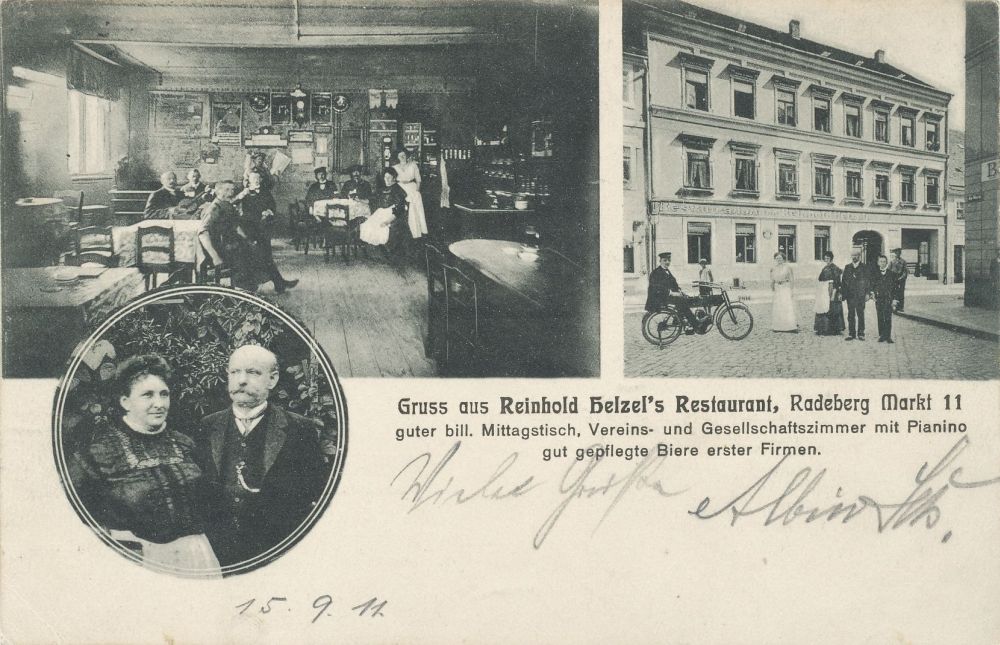 Gruss aus Reinhold Helzel's Restaurant, Radeberg Markt 11
guter bill. Mittagstisch, Vereins- und Gesellschaftszimmer mit Pianino
gut gepflegte Biere erster Firmen.
Viele Grüße Albin
15. 9. 11.